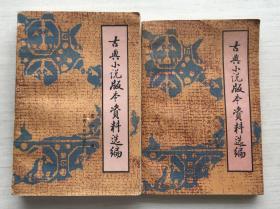 古典小说版本资料选编
古典小说版本资料选编